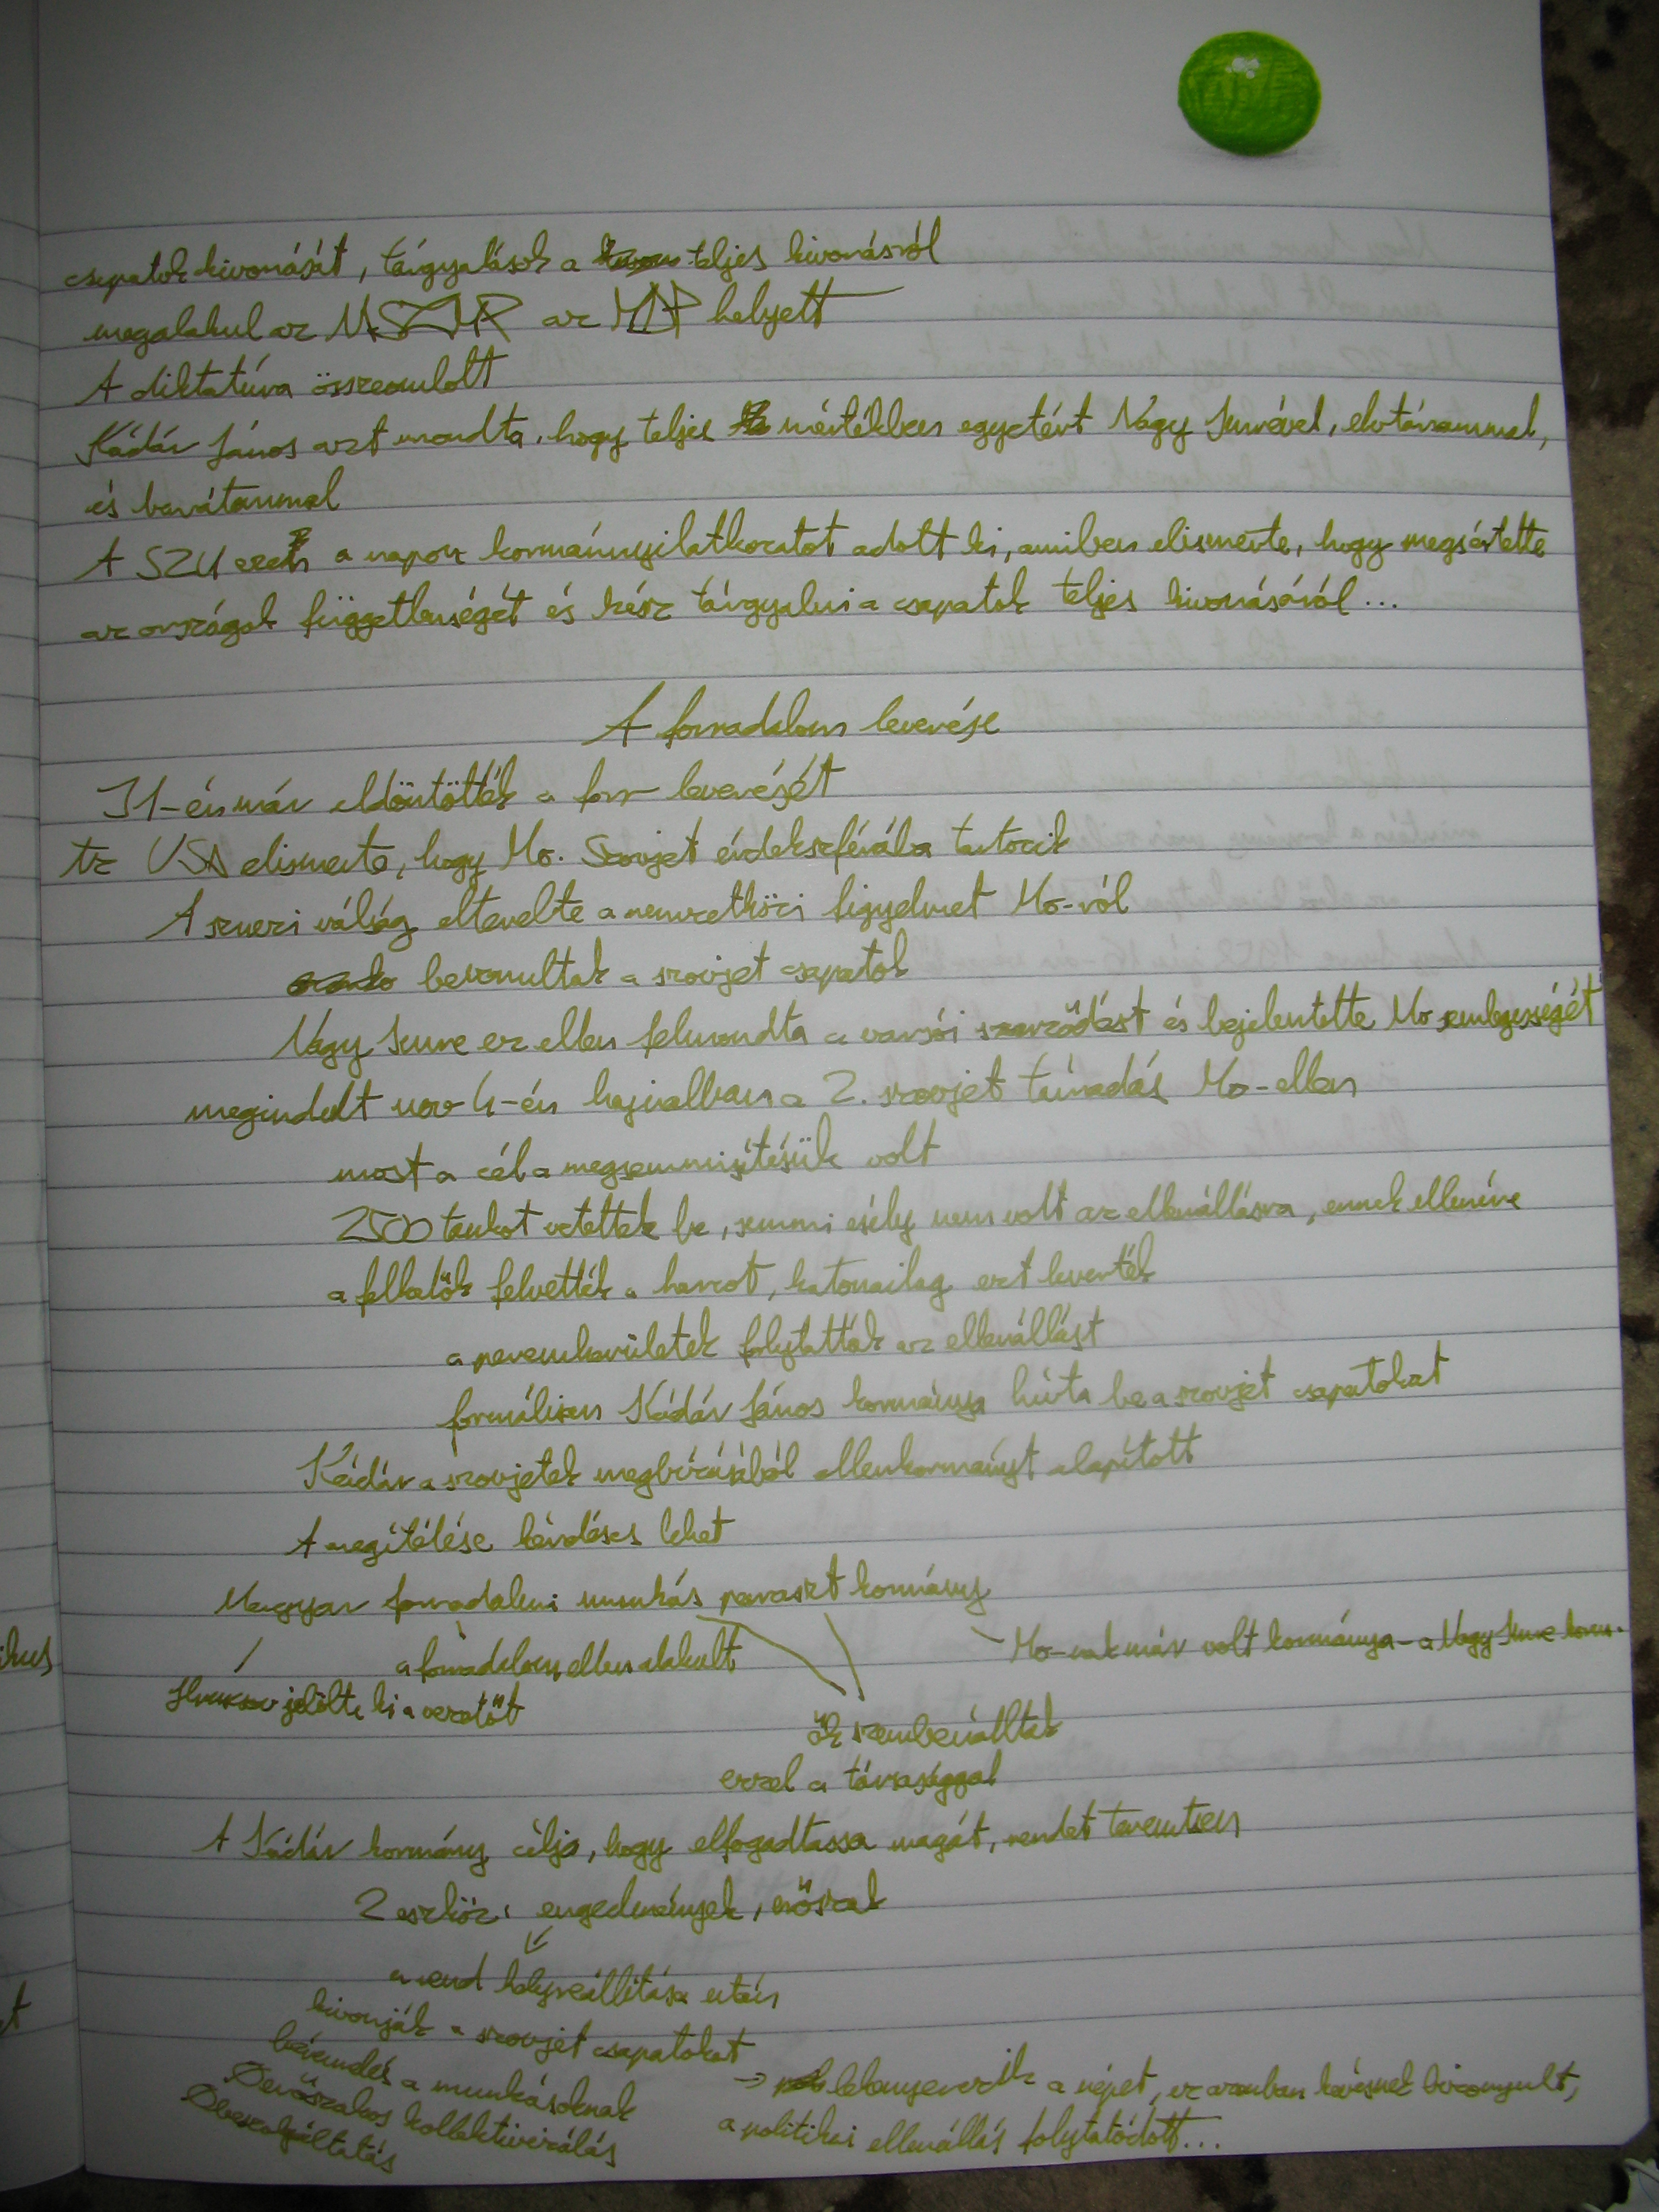 csapatok kivonását, tárgyalások a teljes kivonásról
megalakul az MSZMP az MDP helyett
A diktatúra összeomlott
Kádár János azt mondta, hogy teljes mértékben egyetért Nagy Imrével, elvtársammal,
és barátommal
A SZU ezen a napon kormánynyilatkozatot adott ki, amiben elismerte, hogy megsértette
az országok függetlenségét és kész tárgyalni a csapatok teljes kivonásáról...
A forradalom leverése
31-én már eldöntötték a forr leverését
Az USA elismerte, hogy Mo. Szovjet érdekszférába tartozik
A szuezi válság elterelte a nemzetközi figyelmet Mo-ról
bevonultak a szovjet csapatok
Nagy Imre ez ellen felmondta a varsói szerződést és bejelentette Mo semlegességét
megindult nov 4-én hajnalban a 2. szovjet támadás Mo-ellen
most a cél a megsemmisítésük volt
2500 tankot vetettek be, semmi esély nem volt az ellenállásra, ennek ellenére
a felkelők felvették a harcot, katonailag ezt leverték
a peremkerületek folytatták az ellenállást
formálisan Kádár János kormánya hívta be a szovjet csapatokat
Kádár a szovjetek megbízásából ellenkormányt alapított
A megítélése kérdéses lehet
Magyar forradalmi munkás paraszt kormány
Mo-nak már volt kormánya - a Nagy Imre korm.
a forradalom ellen alakult
Hruscsov jelölte ki a vezetőt
ők szembenálltak
ezzel a társasággal
A Kádár kormány célja, hogy elfogadtassa magát, rendet teremtsen
2 eszköz: engedmények, erőszak
a rend helyreállítása után
kivonják a szovjet csapatokat
béremelés a munkásoknak
Ø erőszakos kollektivizálás
Ø beszolgáltatás
→ lekenyerezik a népet, ez azonban kevésnek bizonyult,
a politikai ellenállás folytatódott...